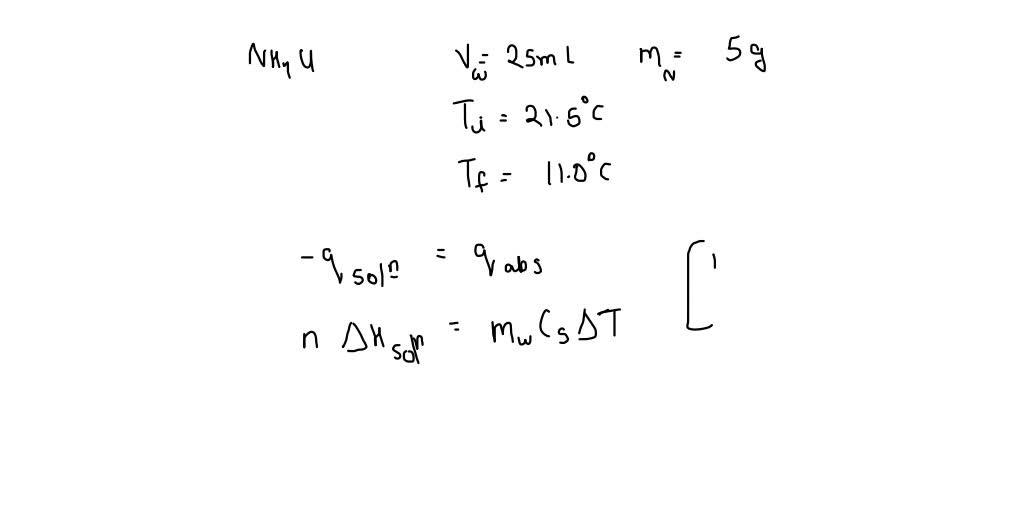 NH4Cl Vw = 25mL mN = 5g
Ti = 21.5°C
Tf = 11.0°C
-q soln = q abs [1
n ΔH soln = mw Cs ΔT